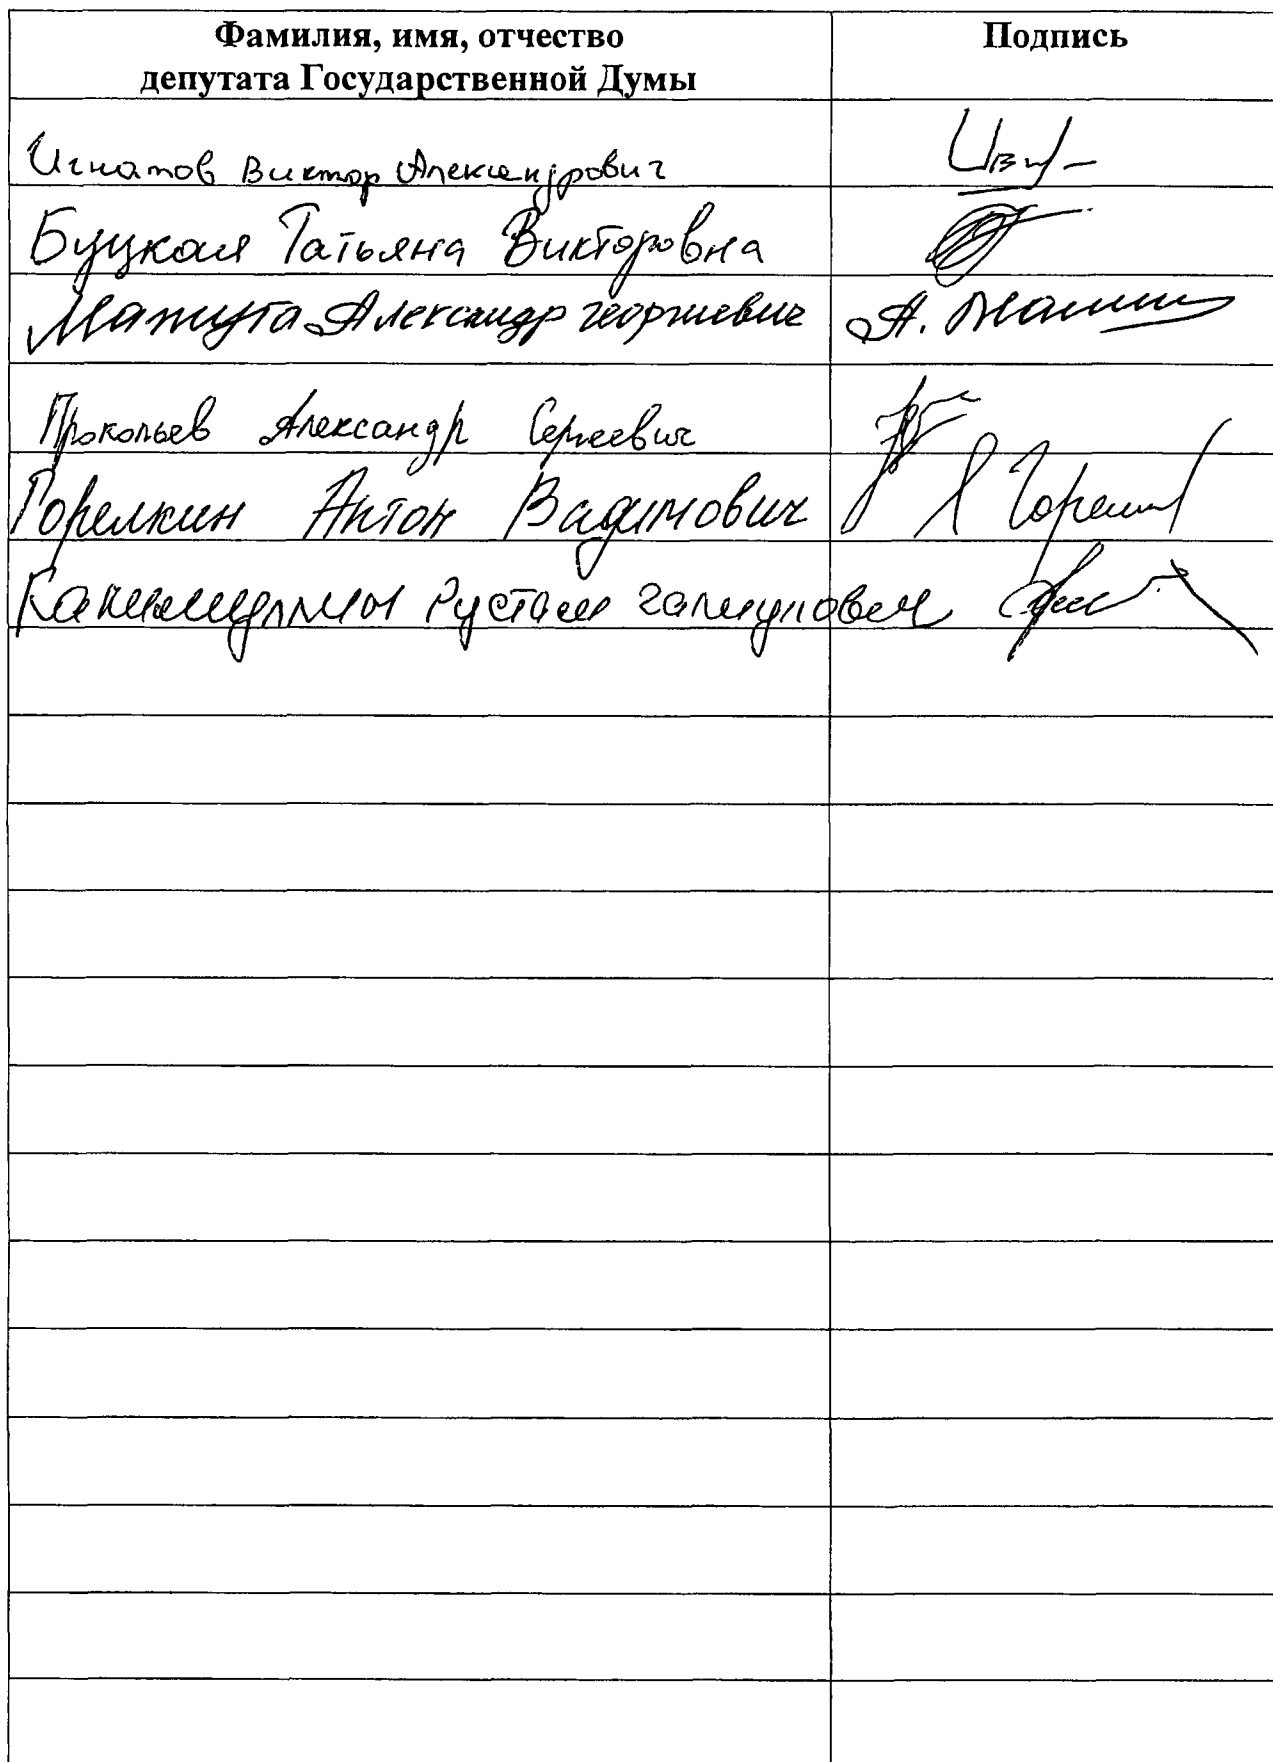 Фамилия, имя, отчество
депутата Государственной Думы
Подпись
Игнатов Виктор Александрович
Буцкая Татьяна Викторовна
Мажуга Александр Георгиевич А. Мажуга
Прокопьев Александр Сергеевич
Горелкин Антон Вадимович
Рустам